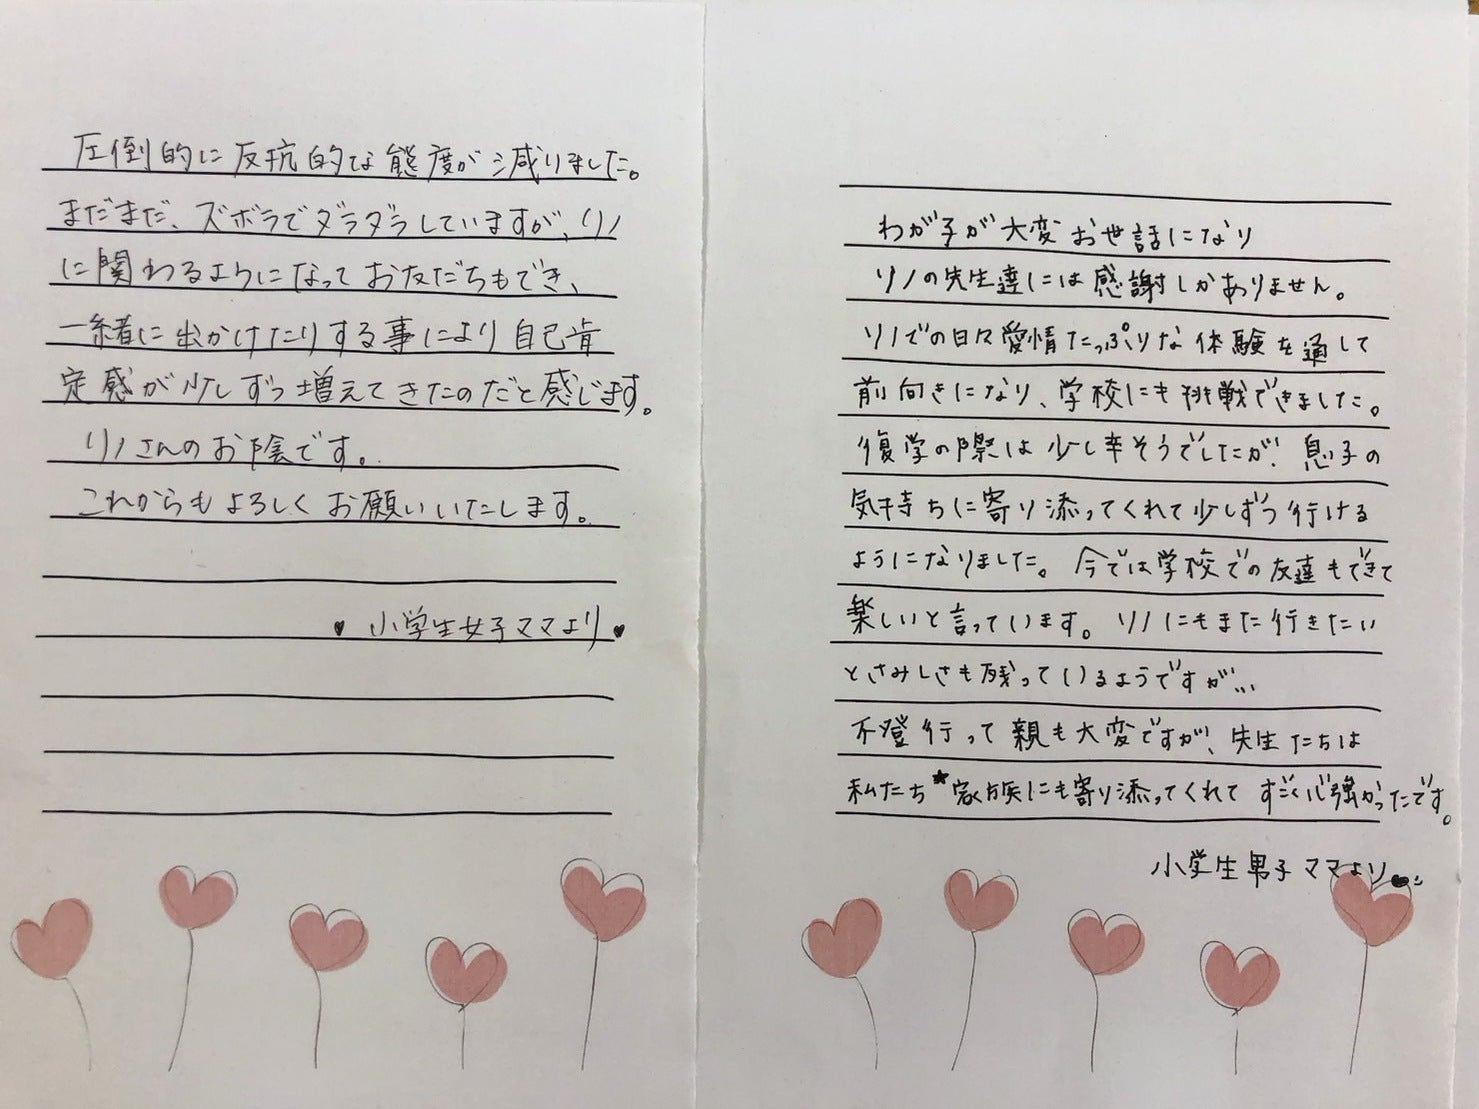 圧倒的に反抗的な態度が減りました。
まだまだ、ズボラでダラダラしていますが、リノ
に関わるようになってお友だちもでき、
一緒に出かけたりする事により自己肯
定感が少しずつ増えてきたのだと感じます。
リノさんのお陰です。
これからもよろしくお願いいたします。
♥ 小学生女子ママより ♥
わが子が大変お世話になり
リノの先生達には感謝しかありません。
リノでの日々愛情たっぷりな体験を通して
前向きになり、学校にも挑戦できました。
復学の際は少し辛そうでしたが、息子の
気持ちに寄り添ってくれて少しずつ行ける
ようになりました。今では学校での友達もできて
楽しいと言っています。リノにもまた行きたい
とさみしさも残っているようですが…
不登行って親も大変ですが、先生たちは
私たち★家族にも寄り添ってくれてすごく心強かったです。
小学生男子ママより